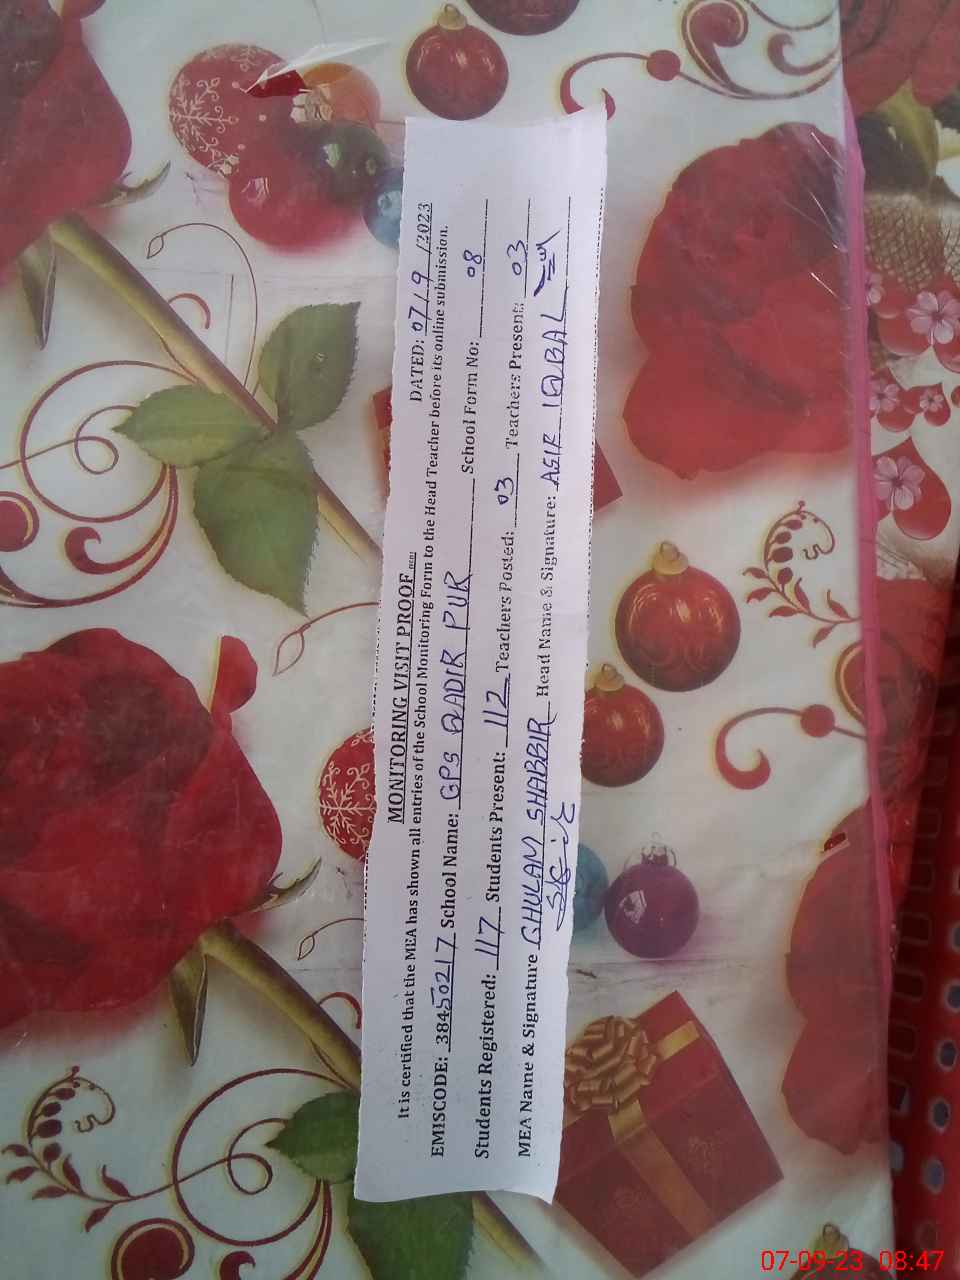 MONITORING VISIT PROOF DATED: 07/9/2023
It is certified that the MEA has shown all entries of the School Monitoring Form to the Head Teacher before its online submission.
EMISCODE: 38450217 School Name: GPS QADIR PUR School Form No: 08
Students Registered: 117 Students Present: 112 Teachers Posted: 03 Teachers Present: 03
MEA Name & Signature GHULAM SHABBIR Head Name & Signature: ASIR IQBAL
07-09-23 08:47